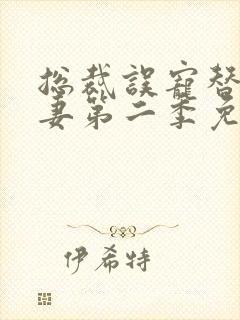 总裁误宠替
妻第二季免
伊希特